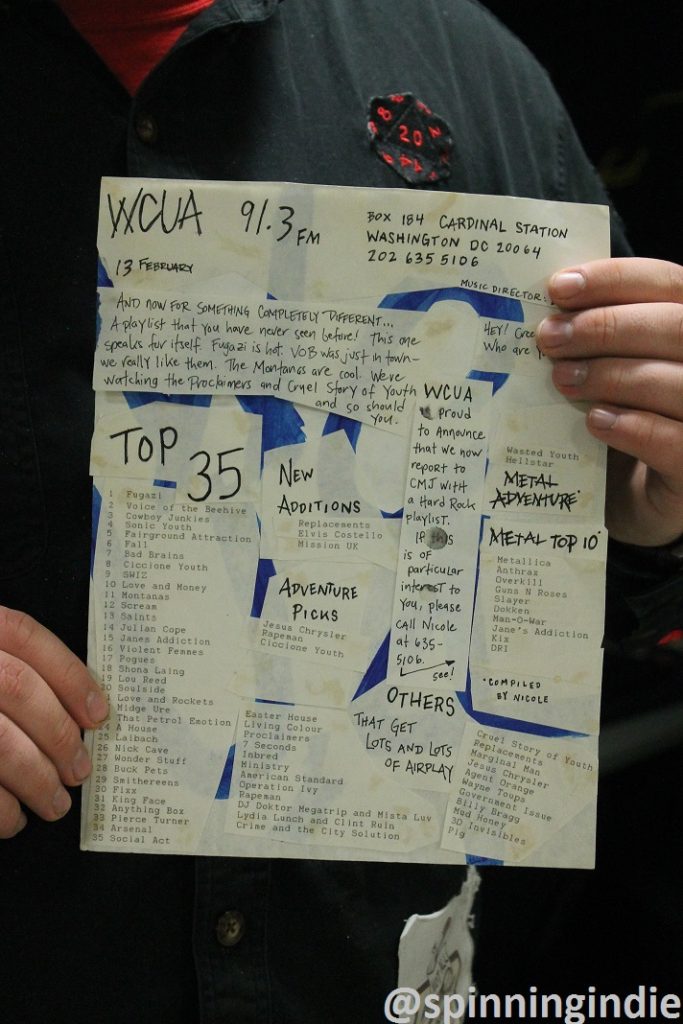 8
20
14
WCUA 91.3 FM
BOX 184 CARDINAL STATION
WASHINGTON DC 20064
202 635 5106
13 FEBRUARY
MUSIC DIRECTOR:
AND NOW FOR SOMETHING COMPLETELY DIFFERENT...
A playlist that you have never seen before! This one
speaks for itself. Fugazi is hot. VOB was just in town-
we really like them. The Montanas are cool. We're
watching the Proclaimers and Cruel Story of Youth
and so should
you.
HEY!
Who are
TOP
35
1 Fugazi
2 Voice of the Beehive
3 Cowboy Junkies
4 Sonic Youth
5 Fairground Attraction
6 Fall
7 Bad Brains
8 Ciccione Youth
9 SWIZ
10 Love and Honey
11 Montanas
12 Scream
13 Saints
14 Julian Cope
15 Janes Addiction
16 Violent Femmes
17 Pogues
18 Shona Laing
19 Lou Reed
20 Soulside
Love and Rockets
Midge Ure
That Petrol Emotion
A House
25 Laibach
26 Nick Cave
27 Wonder Stuff
28 Buck Pets
29 Smithereens
30 Fixx
31 King Face
32 Anything Box
33 Pierce Turner
34 Arsenal
35 Social Act
NEW
ADDITIONS
Replacements
Elvis Costello
Mission UK
ADVENTURE
PICKS
Jesus Chrysler
Rapeman
Ciccione Youth
Easter House
Living Colour
Proclaimers
7 Seconds
Inbred
Ministry
American Standard
Operation Ivy
Rapeman
DJ Doktor Megatrip and Mista Luv
Lydia Lunch and Clint Ruin
Crime and the City Solution
WCUA
is proud
to announce
that we now
report to
CMJ with
a Hard Rock
playlist.
IF this
is of
particular
interest to
you, please
call Nicole
at 635-
5106.
see!
OTHERS
THAT GET
LOTS AND LOTS
OF AIRPLAY
Wasted Youth
Hellstar
METAL
ADVENTURE*
METAL TOP 10*
Metallica
Anthrax
Overkill
Guns N Roses
Slayer
Dokken
Man-O-War
Jane's Addiction
Kix
DRI
*COMPILED
BY NICOLE
Cruel Story of Youth
Replacements
Marginal Man
Jesus Chrysler
Agent Orange
Wayne Toops
Government Issue
Billy Bragg
Mud Honey
3D Invisibles
Pig
@spinningindie